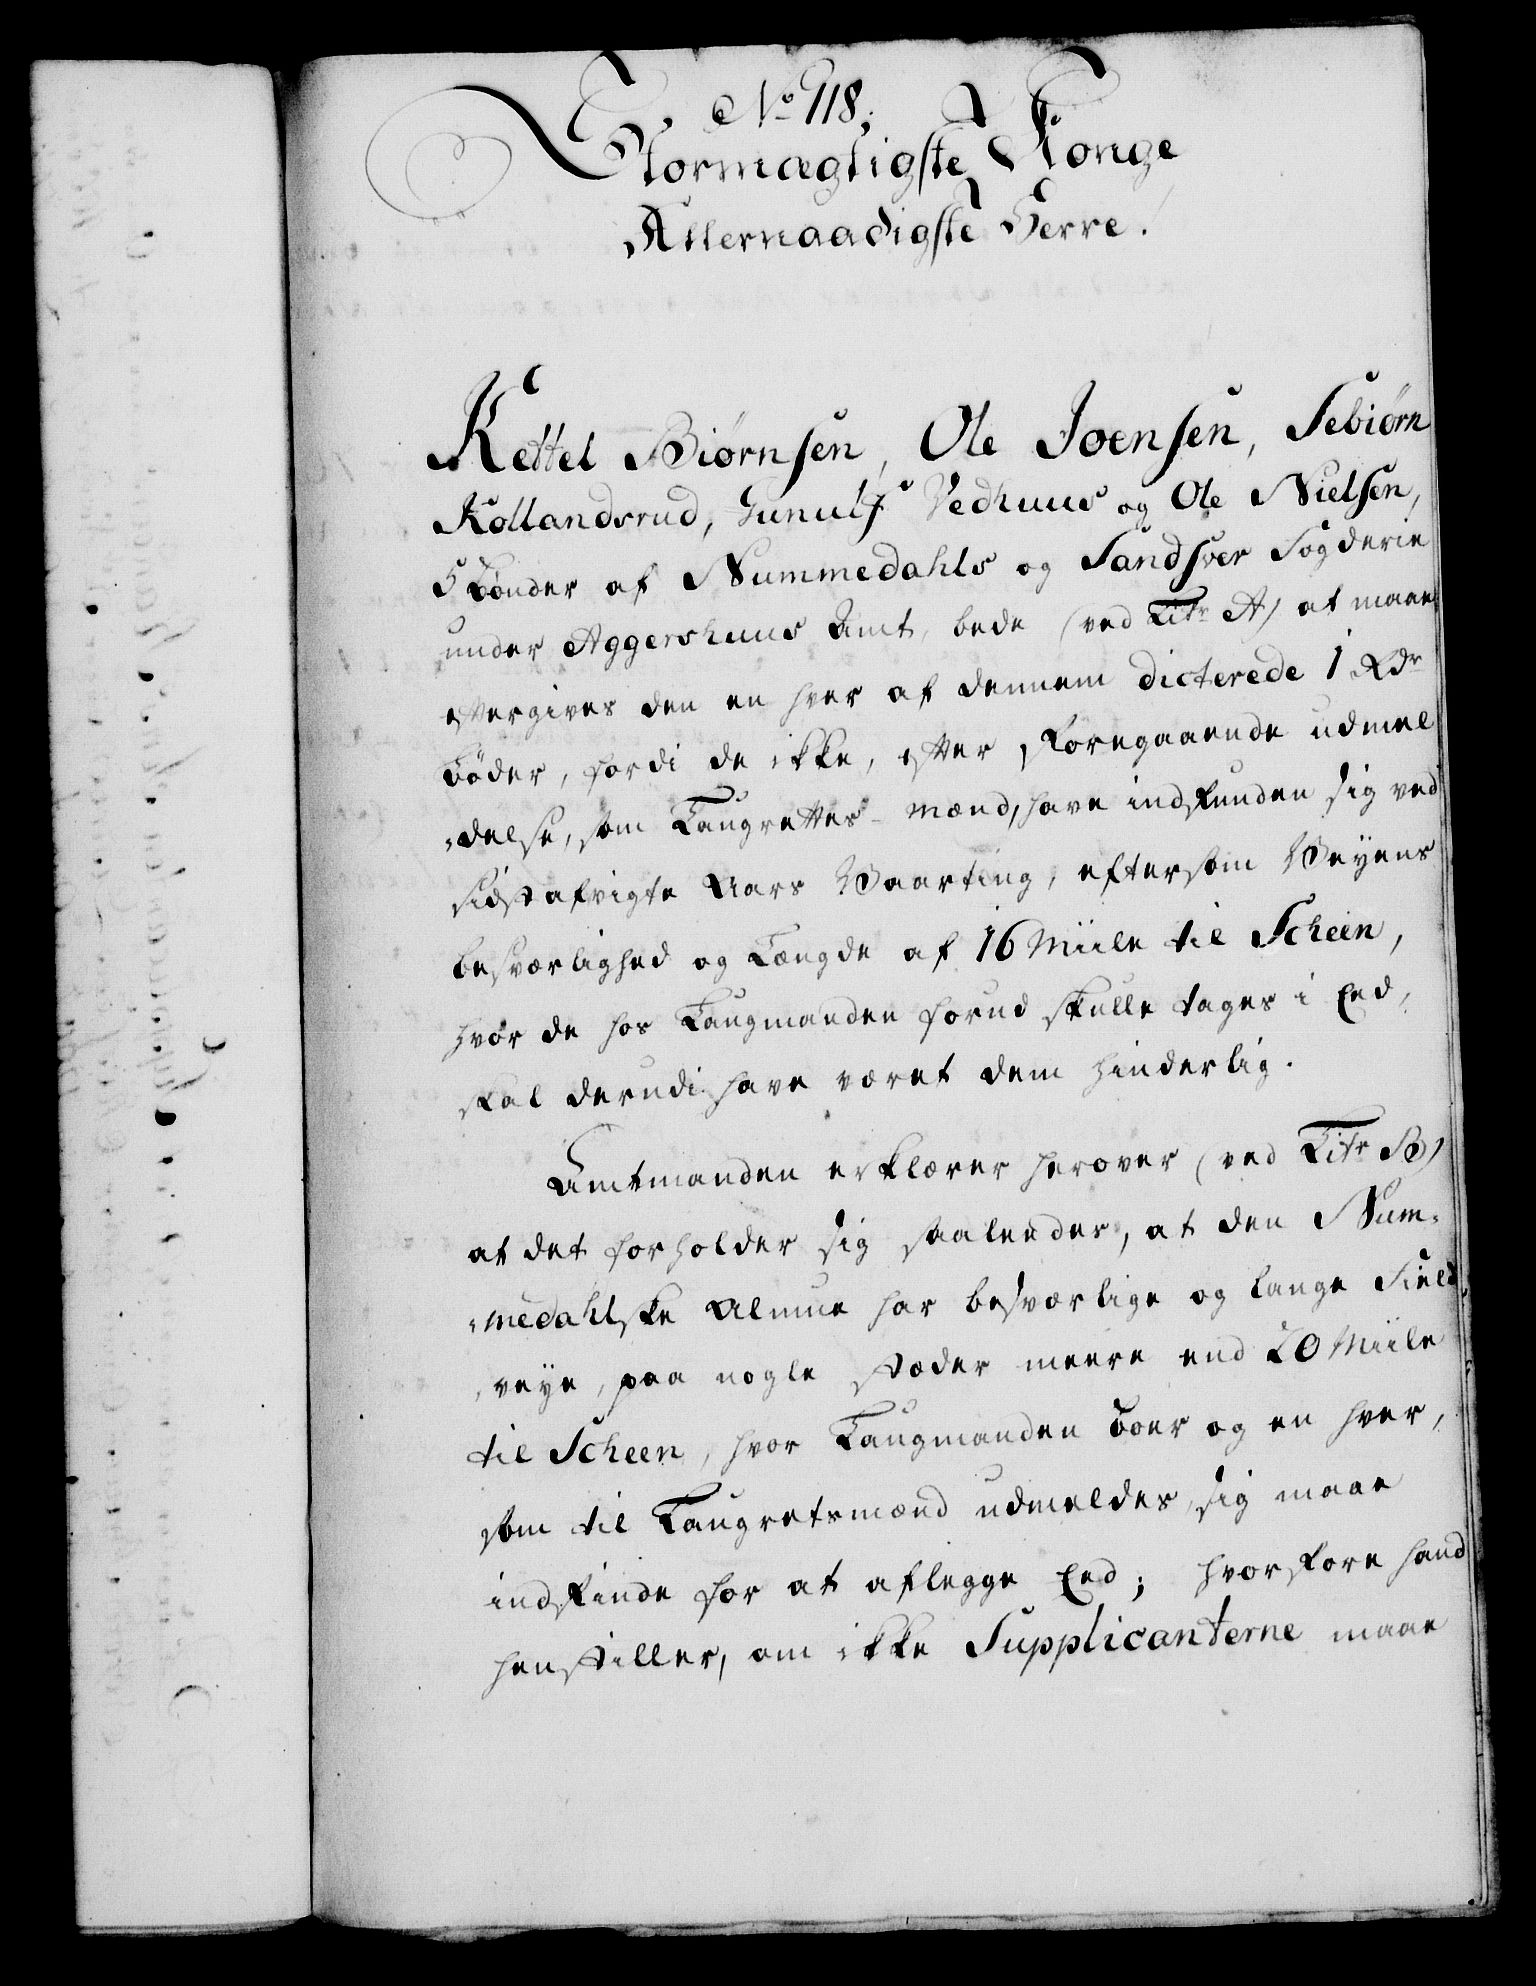 No 118.
Stormægtigste Konge
Allernaadigste Herre.
Kettel Biørnsen, Ole Joensen, Sebiørn
Kollandsrud, Gunulf Vedhuus og Ole Nielsen,
5 Bønder af Nummedahls og Sandsver Fogderie
under Aggershuus Amt, bede (ved Litr A) at maae
eftergives den en hver af dennem dicterede 1 Rdr
Bøder, fordi de ikke, efter foregaaende udmel
-delse, som Laugrettes-mænd, have indfunden sig ved
sidstafvigte Aars Vaarting, eftersom Veyens
besværlighed og Længde af 16 Miile til Scheen,
hvor de hos Laugmanden forud skulle tages i Eed,
skal derudi have været dem hinderlig.
Amtmanden erklærer herover (ved Litr B)
at det forholder sig saaledes, at den Num-
-medahlske Almue har besværlige og lange Field
-veye, paa nogle stæder meere end 20 Miile
til Scheen, hvor Laugmanden boer og en hver,
som til Laugretsmænd udmeldes, sig maae
indfinde for at aflegge Eed; hvorfore hand
henstiller, om ikke Supplicanterne maae